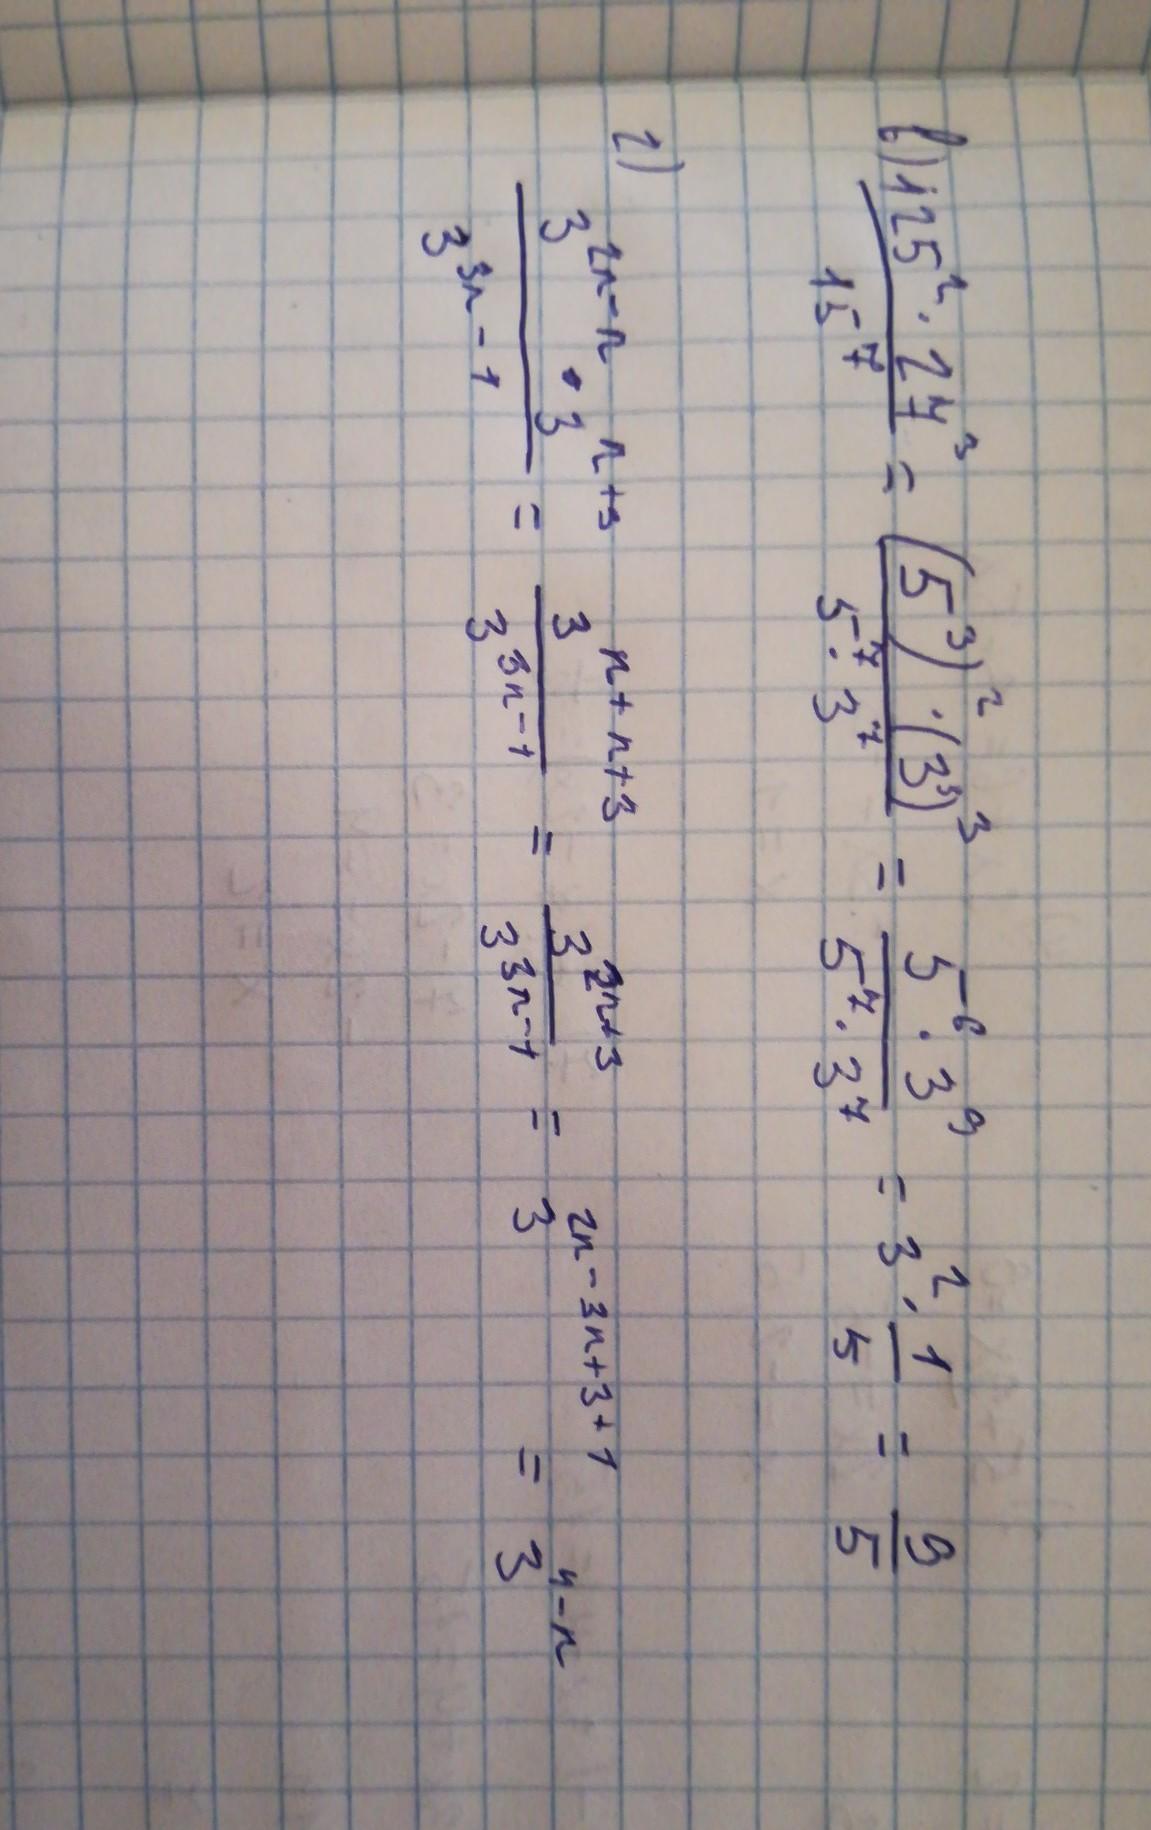 в) 125² · 27³ / 15⁷ = (5³)² · (3³)³ / 5⁷ · 3⁷ = 5⁶ · 3⁹ / 5⁷ · 3⁷ = 3² · 1/5 = 9/5
г) 3²ⁿ⁻ⁿ · 3ⁿ⁺³ / 3³ⁿ⁻¹ = 3ⁿ⁺ⁿ⁺³ / 3³ⁿ⁻¹ = 3²ⁿ⁺³ / 3³ⁿ⁻¹ = 3²ⁿ⁻³ⁿ⁺³⁺¹ = 3⁴⁻ⁿ